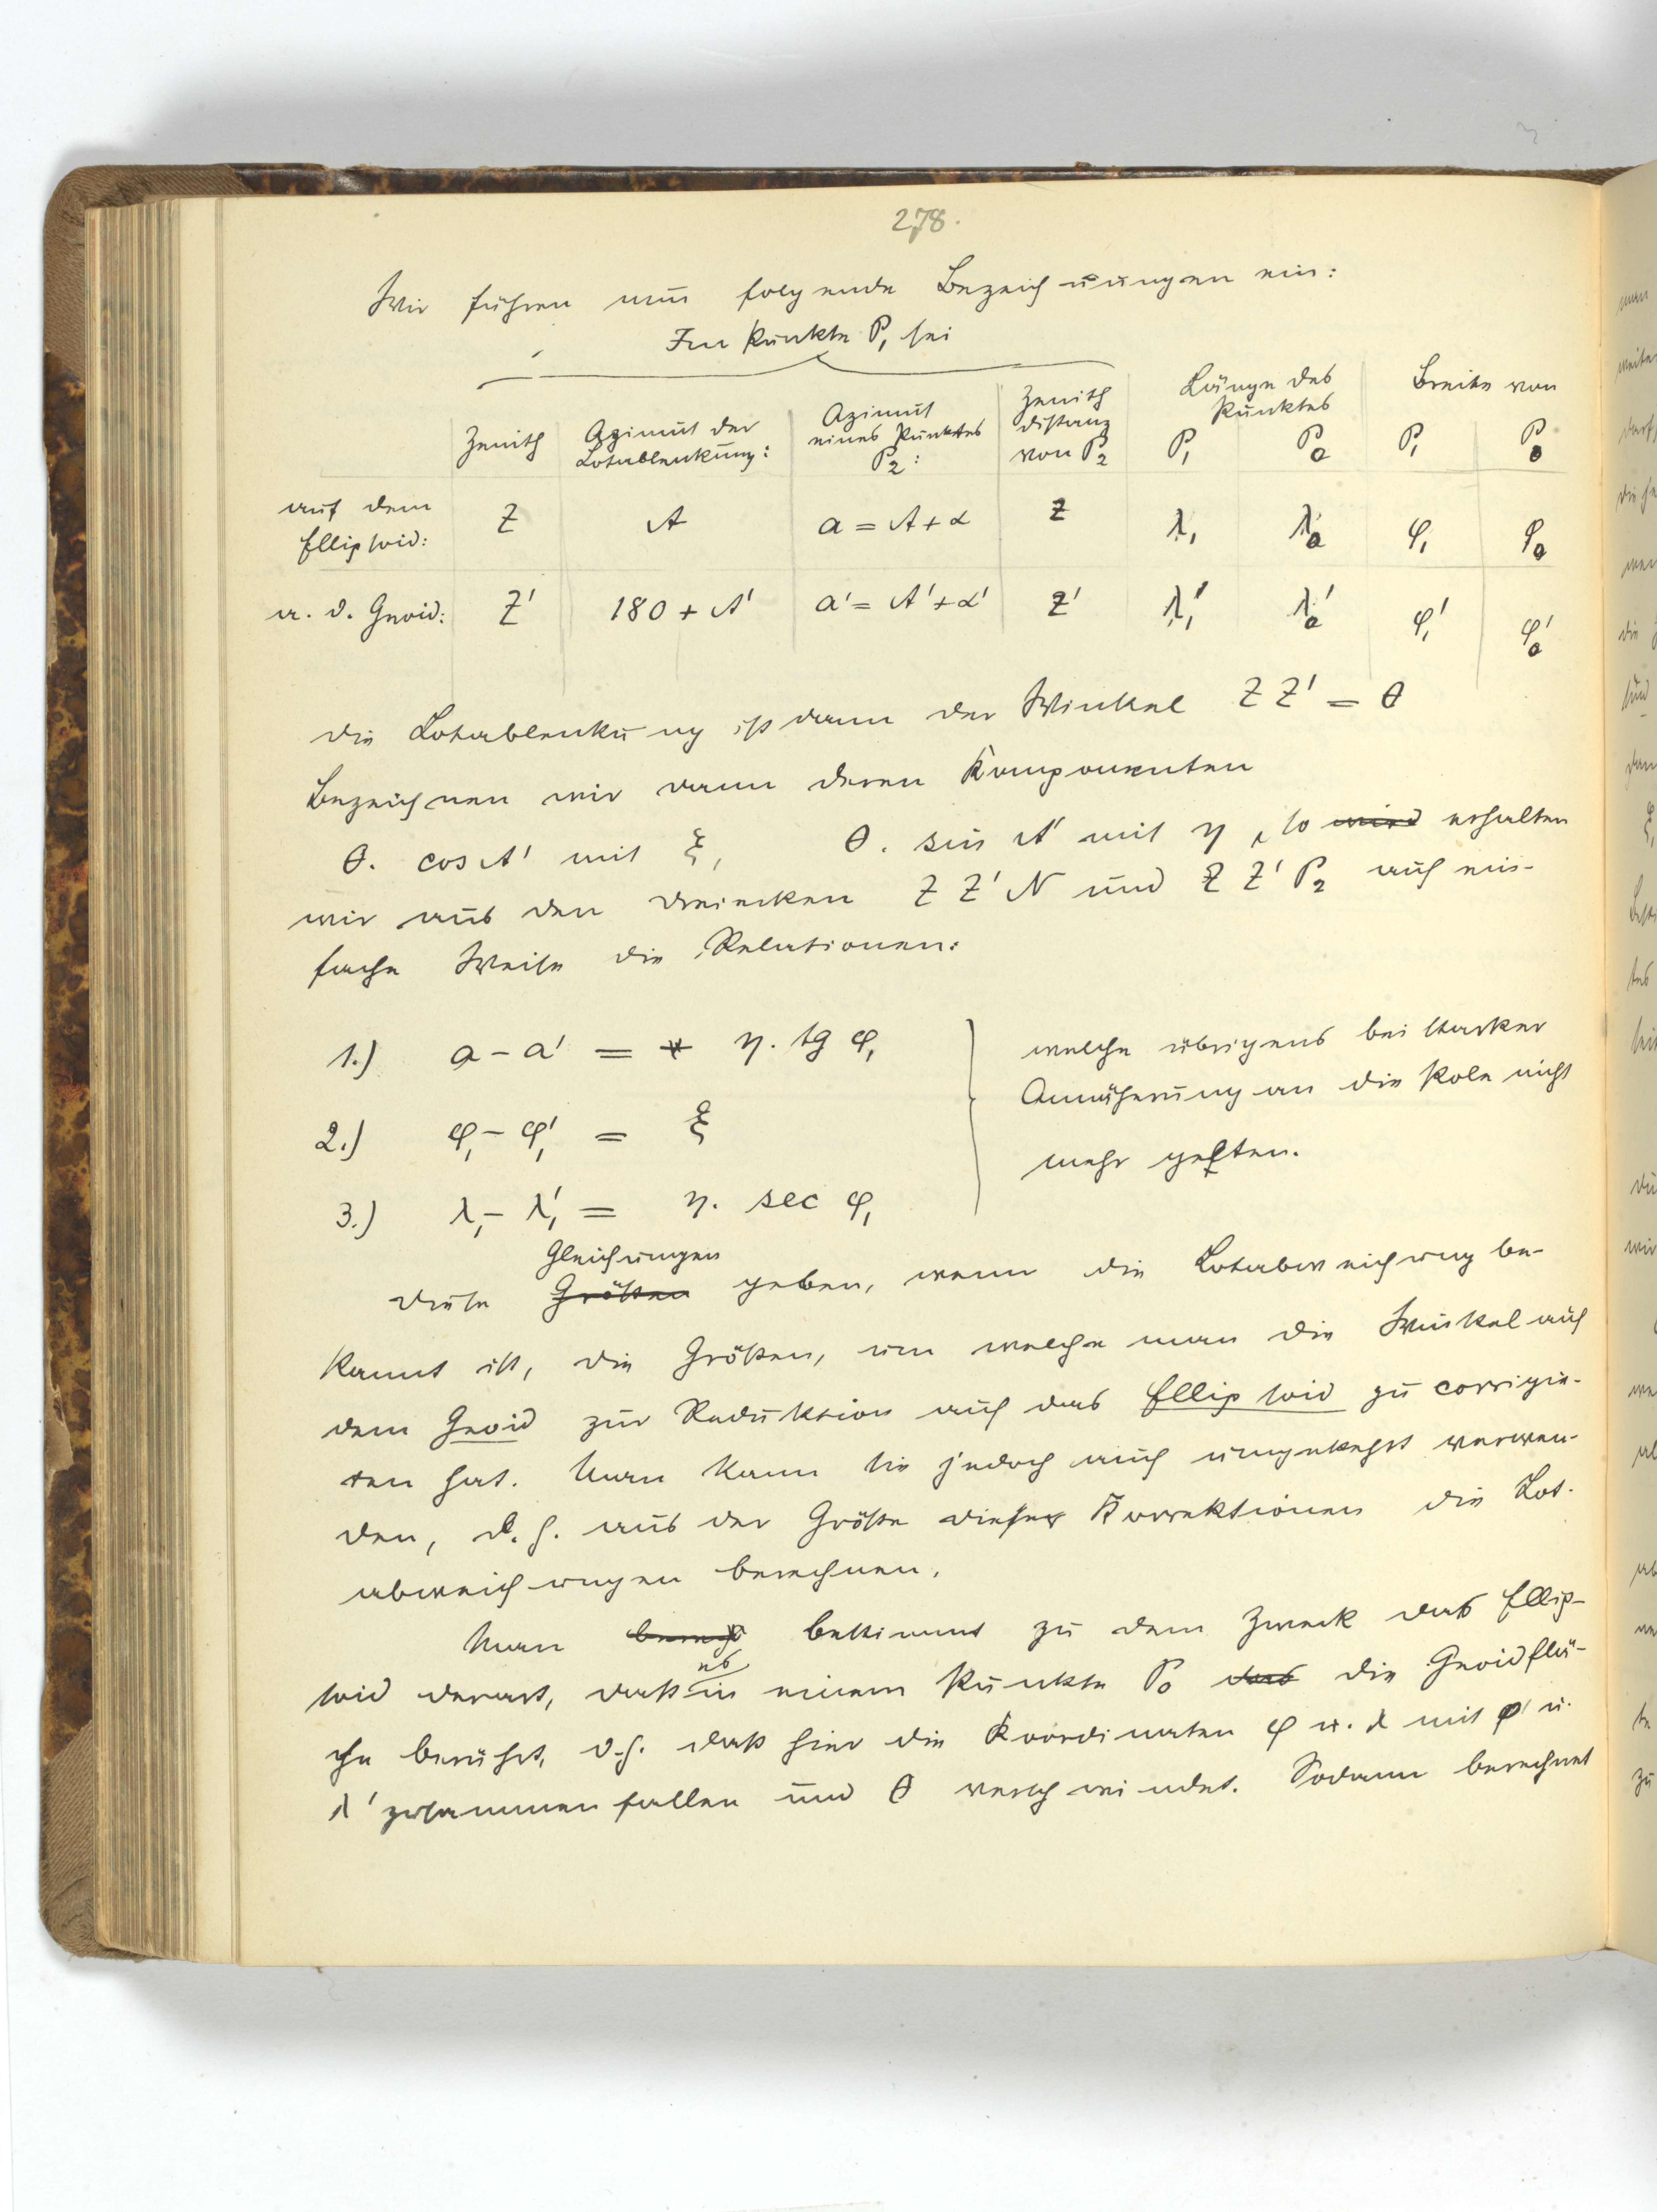 278.
Wir führen nun folgende Bezeichnungen ein:
Im Punkte P₁ sei
Zenith | Azimut der Lotablenkung: | Azimut eines Punktes P₂: | Zenith distanz von P₂ | Länge des Punktes P₁ | P₀ | Breite von P₁ | P₀
auf dem Ellipsoid: | Z | A | a = A + α | z | λ₁ | λ₀ | φ₁ | φ₀
a. d. Geoid: | Z' | 180 + A' | a' = A' + α' | z' | λ₁' | λ₀' | φ₁' | φ₀'
die Lotablenkung ist dann der Winkel Z Z' = θ
Bezeichnen wir dann deren Komponenten
θ. cos A' mit ξ, θ. sin A' mit η, so wird erhalten
wir aus den Dreiecken Z Z' N und Z Z' P₂ auf ein-
fache Weise die Relationen:
1.) a - a' = η. tg φ₁
welche übrigens bei starker
Annäherung an die Pole nicht
2.) φ₁ - φ₁' = ξ
mehr gelten.
3.) λ₁ - λ₁' = η. sec φ₁
Gleichungen
diese Größen geben, wenn die Lotabweichung be-
kannt ist, die Größen, um welche man die Winkel auf
dem Geoid zur Reduktion auf das Ellipsoid zu corrigie-
ren hat. Man kann sie jedoch auch umgekehrt verwen-
den, d. h. aus der Größe dieser Korrektionen die Lot-
abweichungen berechnen.
Man bestimmt zu dem Zweck das Ellip-
es
soid derart, daß in einem Punkte P₀ das die Geoidflä-
che berührt, d.h. daß hier die Koordinaten φ u. λ mit φ' u.
λ' zusammenfallen und θ verschwindet. Sodann berechnet